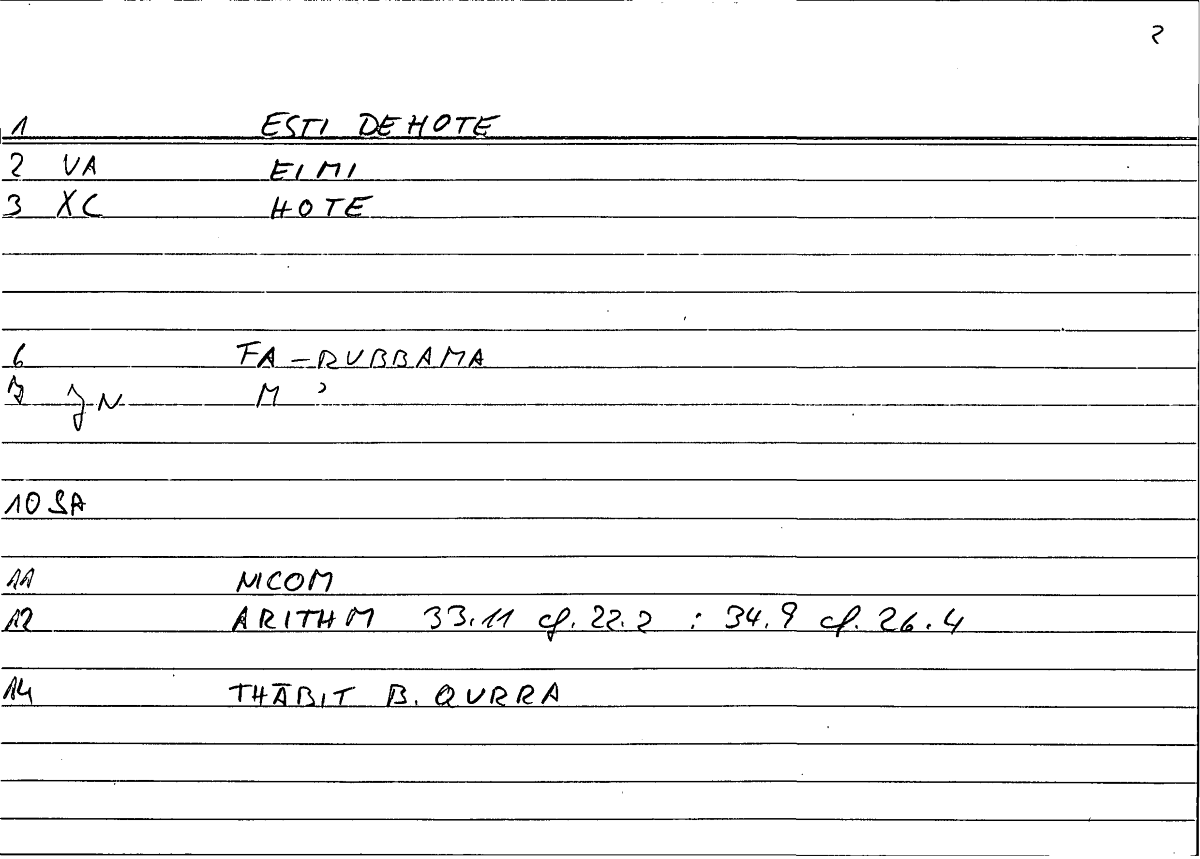 2
1 ESTI DE HOTE
2 VA EIMI
3 XC HOTE
6 FA-RUBBAMA
7 JN M ʾ
10 SA
11 NICOM
12 ARITHM 33.11 cf. 22.2 : 34.9 cf. 26.4
14 THĀBIT B. QURRA